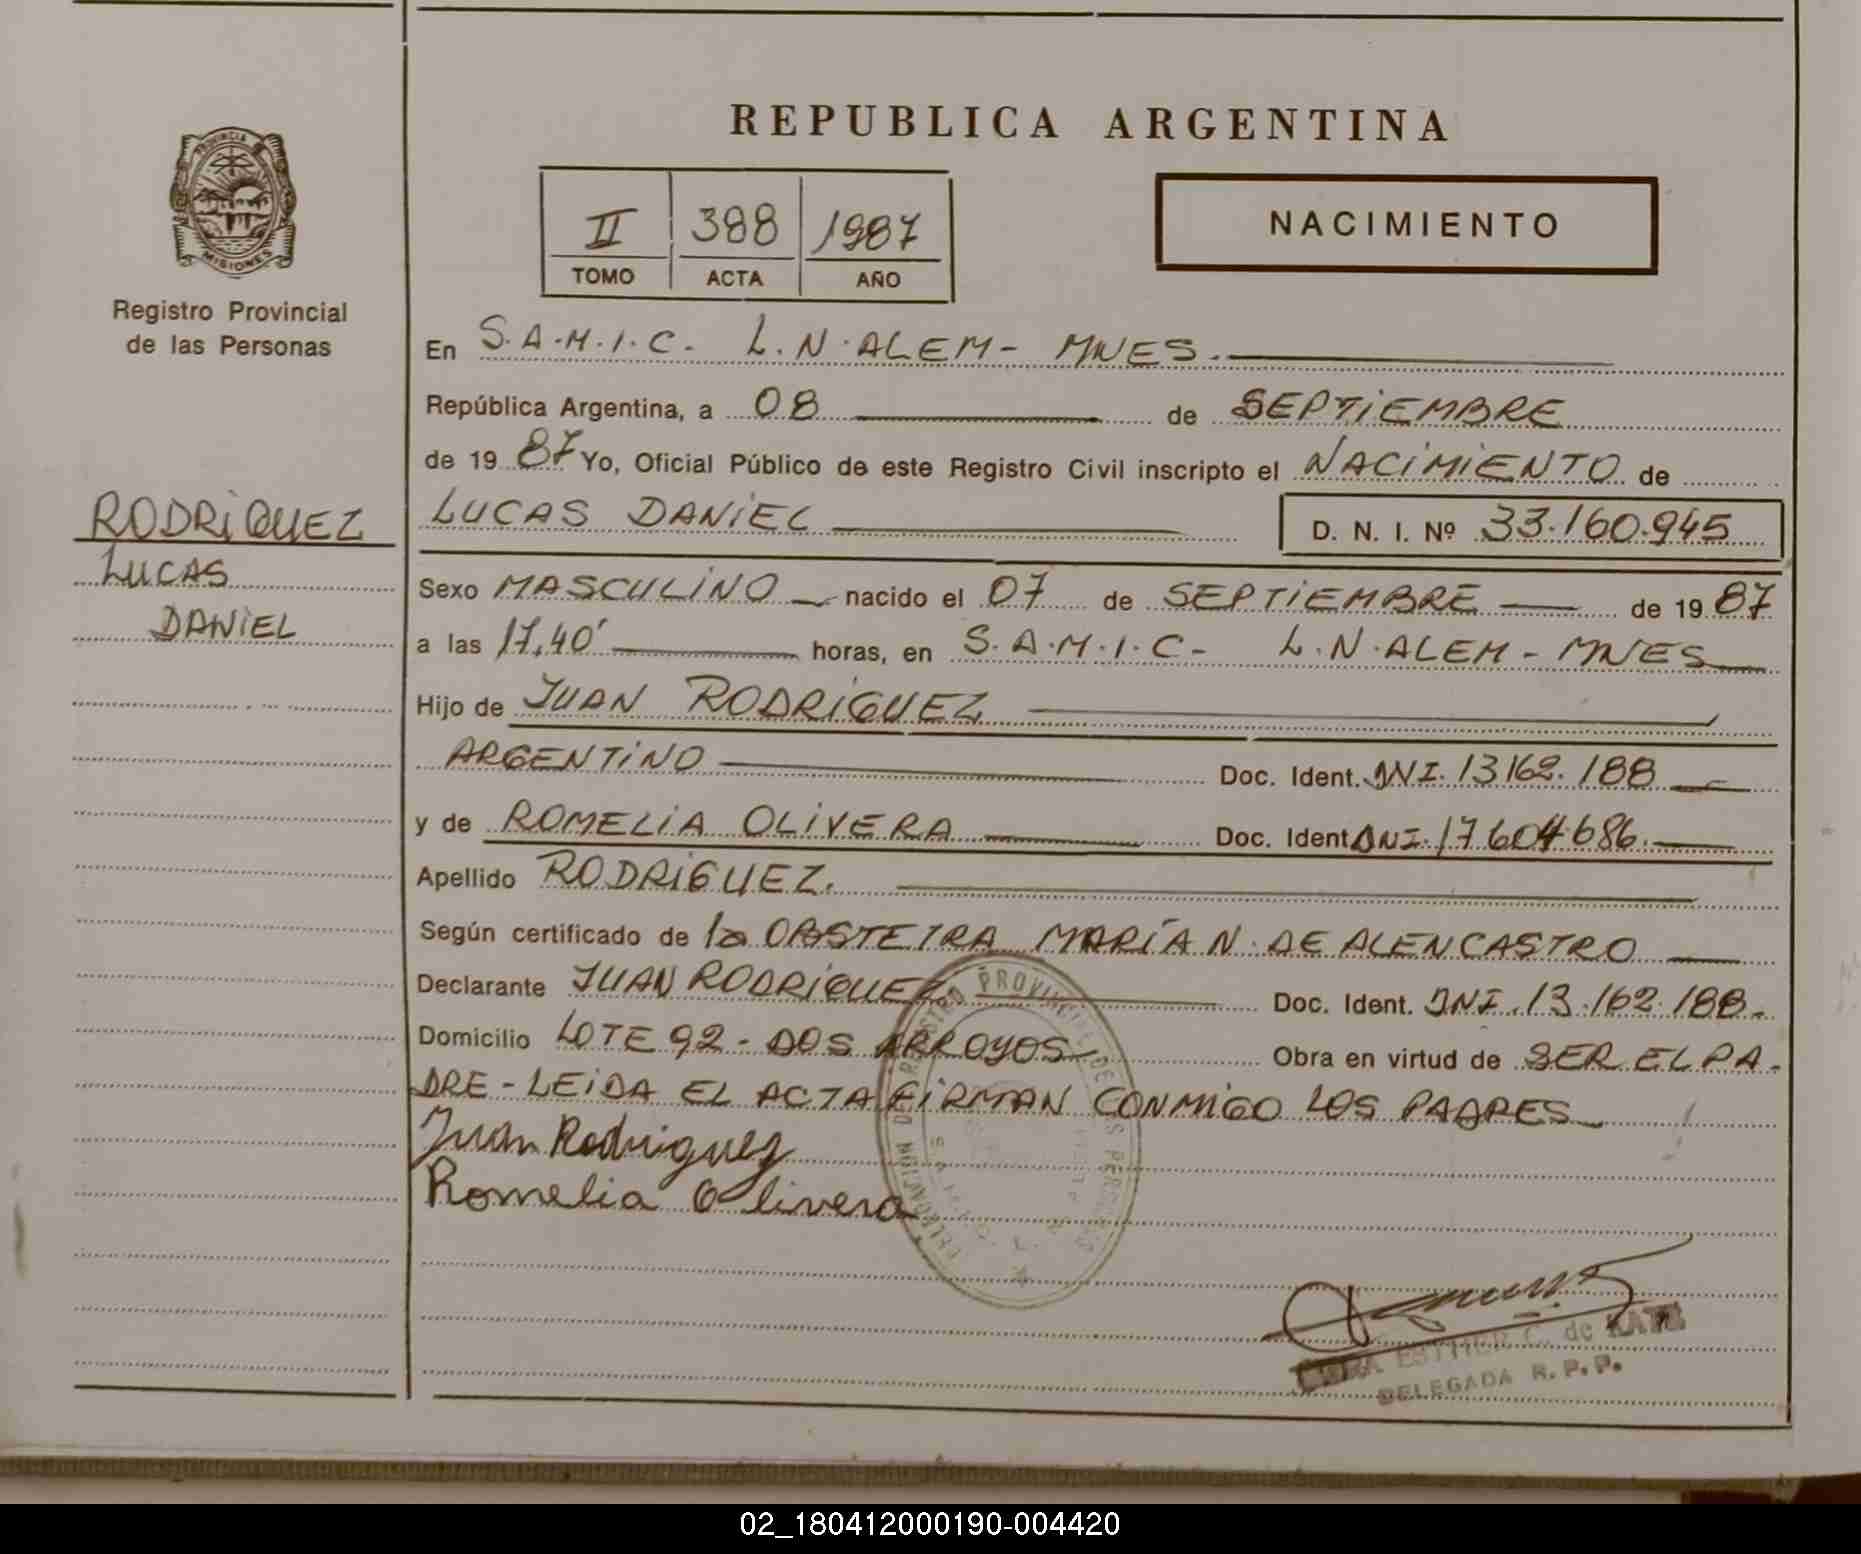 REPUBLICA ARGENTINA
PROVINCIA DE
MISIONES
Registro Provincial
de las Personas
II 388 1987
TOMO ACTA AÑO
NACIMIENTO
En S.A.M.I.C. L.N.ALEM- MNES.
República Argentina, a 08 de SEPTIEMBRE
de 19 87 Yo, Oficial Público de este Registro Civil inscripto el NACIMIENTO de
RODRIGUEZ
LUCAS
DANIEL
LUCAS DANIEL D. N. I. Nº 33.160.945
Sexo MASCULINO nacido el 07 de SEPTIEMBRE de 19 87
a las 17,40' horas, en S.A.M.I.C- L.N.ALEM - MNES
Hijo de JUAN RODRIGUEZ
ARGENTINO Doc. Ident. DNI. 13162.188
y de ROMELIA OLIVERA Doc. Ident DNI. 17604686.
Apellido RODRIGUEZ.
Según certificado de la OBSTETRA MARÍA N. DE ALENCASTRO
Declarante JUAN RODRIGUEZ Doc. Ident. DNI. 13.162.188.
Domicilio LOTE 92 - DOS ARROYOS Obra en virtud de SER EL PA-
DRE - LEIDA EL ACTA FIRMAN CONMIGO LOS PADRES
Juan Rodriguez
Romelia Olivera
DELEGACION DEL REGISTRO PROVINCIAL DE LAS PERSONAS
ESTHER C. de
DELEGADA R.P.P.
02_180412000190-004420